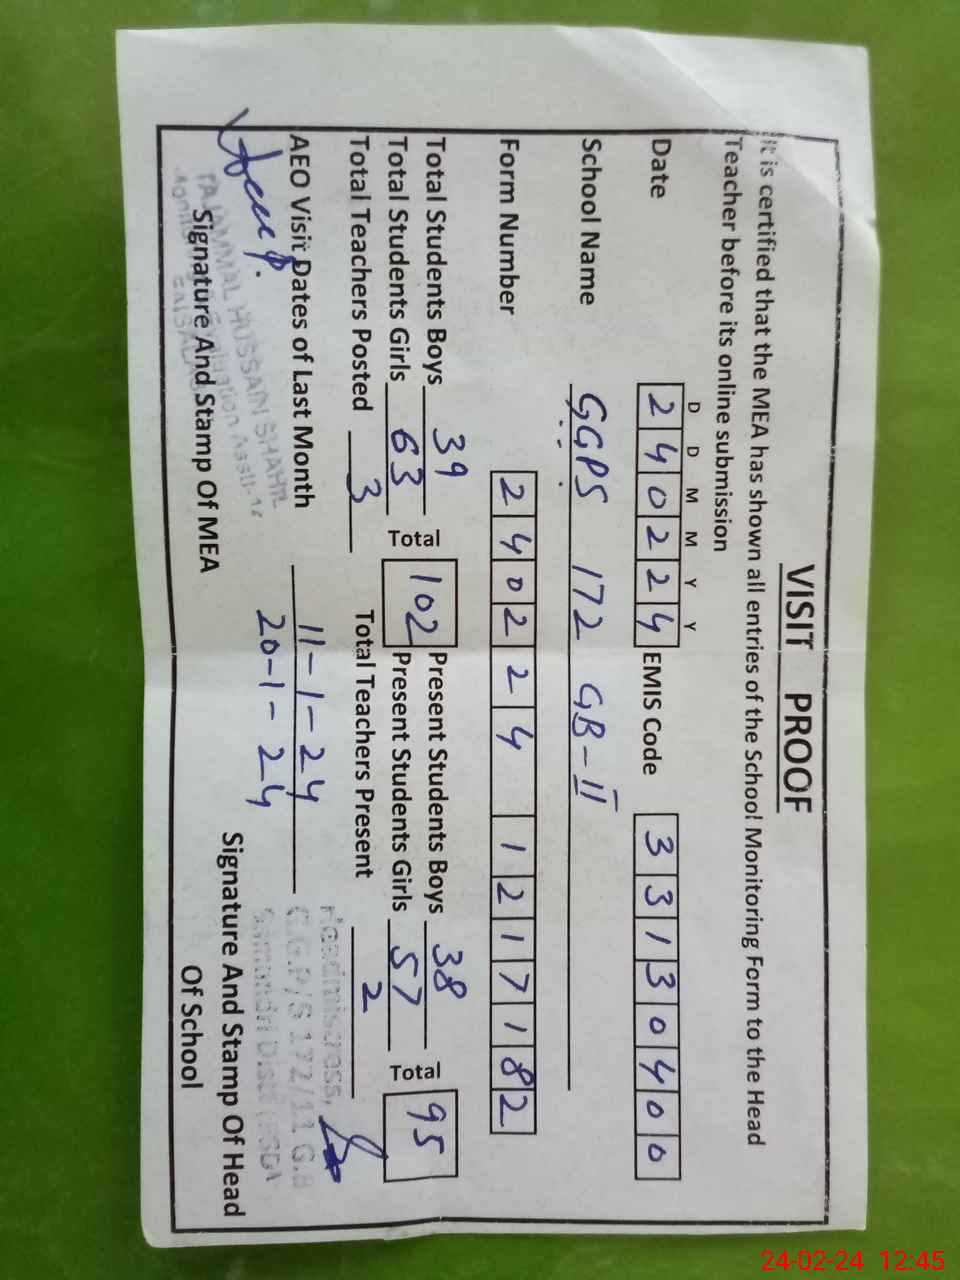 VISIT PROOF
It is certified that the MEA has shown all entries of the School Monitoring Form to the Head
Teacher before its online submission
D D M M Y Y
Date 2 4 0 2 2 4 EMIS Code 3 3 1 3 0 4 0 0
School Name GGPS 172 GB-II
Form Number 2 4 0 2 2 4 1 2 1 7 1 8 2
Total Students Boys 39 Total 102 Present Students Boys 38 Total 95
Total Students Girls 63 Present Students Girls 57
Total Teachers Posted 3 Total Teachers Present 2
AEO Visit Dates of Last Month 11-1-24
20-1-24
TAJAMMAL HUSSAIN SHAH
Signature And Stamp Of MEA
Headmistress,
G.G.P/S 172/11 G.B
Signature And Stamp Of Head
Of School
24-02-24 12:45